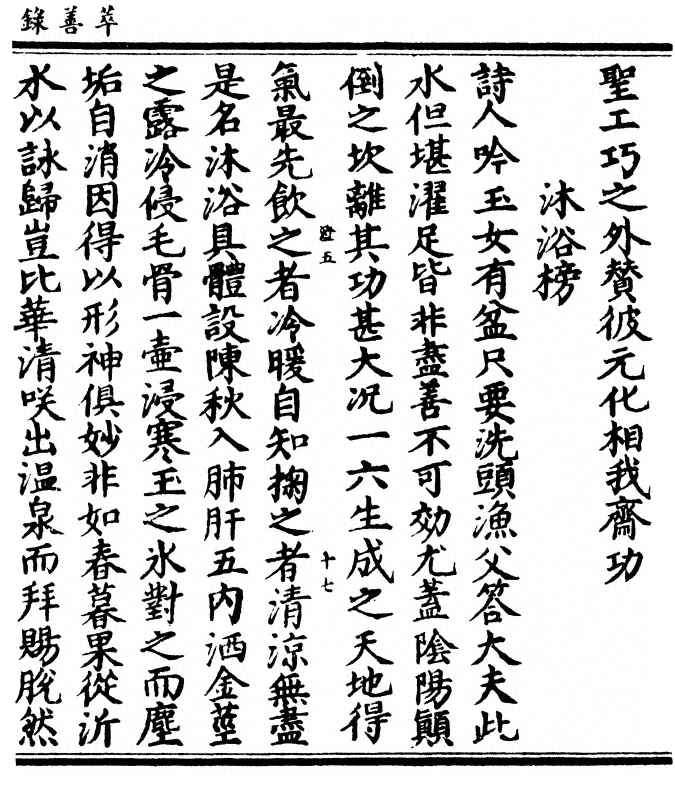 萃善錄
聖工巧之外贊彼元化相我齋功
沐浴榜
詩人吟玉女有盆尺要洗頭漁父答大夫此
水但堪濯足皆非盡善不可効尤蓋陰陽顛
倒之坎離其功甚大况一六生成之天地得
氣最先飲之者冷暖自知掬之者清凉無盡
五
十七
是名沐浴具體設陳秋入肺肝五内洒金莖
之露冷侵毛骨一壷浸寒玉之氷對之而塵
垢自消因得以形神俱妙非如春暮果從沂
水以詠歸豈比華清咲出温泉而拜賜脫然